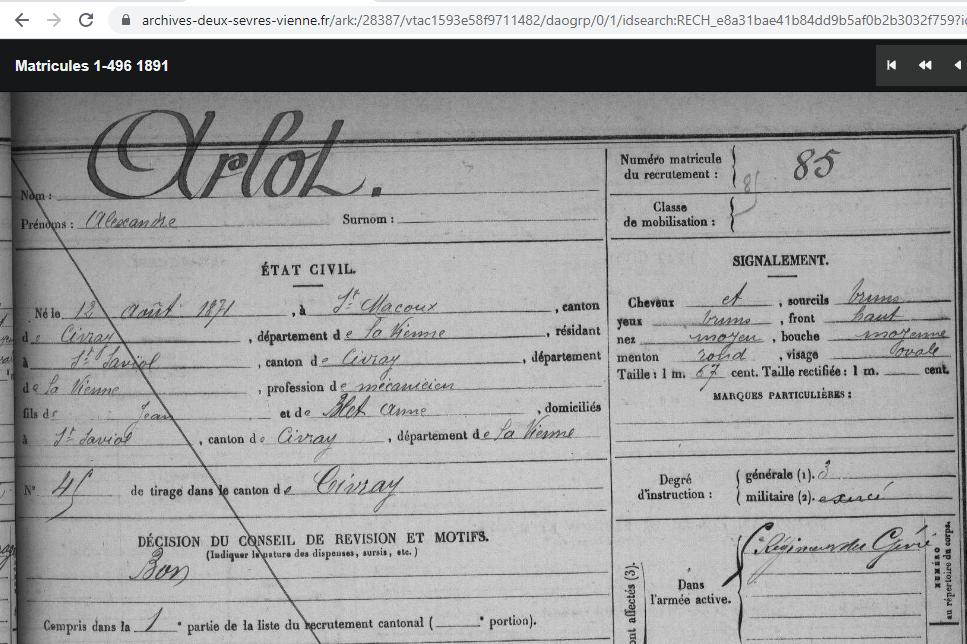 archives-deux-sevres-vienne.fr/ark:/28387/vtac1593e58f9711482/daogrp/0/1/idsearch:RECH_e8a31bae41b84dd9b5af0b2b3032f759?i
Matricules 1-496 1891
Arlot.
Nom :
Prénoms : Alexandre Surnom :
Numéro matricule
du recrutement : 85
Classe
de mobilisation :
ÉTAT CIVIL.
Né le 12 août 1871, à St Macoux, canton
de Civray, département de la Vienne, résidant
à St Saviol, canton de Civray, département
de la Vienne, profession de mécanicien
fils de Jean et de Blet Anne, domiciliés
à St Saviol, canton de Civray, département de la Vienne
N° 45 de tirage dans le canton de Civray
DÉCISION DU CONSEIL DE REVISION ET MOTIFS.
(Indiquer la nature des dispenses, sursis, etc.)
Bon
Compris dans la 1e partie de la liste du recrutement cantonal ( e portion).
SIGNALEMENT.
Cheveux et, sourcils bruns
yeux bruns, front haut
nez moyen, bouche moyenne
menton rond, visage ovale
Taille : 1 m. 67 cent. Taille rectifiée : 1 m. cent.
MARQUES PARTICULIÈRES :
Degré
d'instruction :
générale (1). 3
militaire (2). exercé
affectés (3).
Dans
l'armée active.
Régiment du Géni
NUMÉRO
au répertoire du corps.